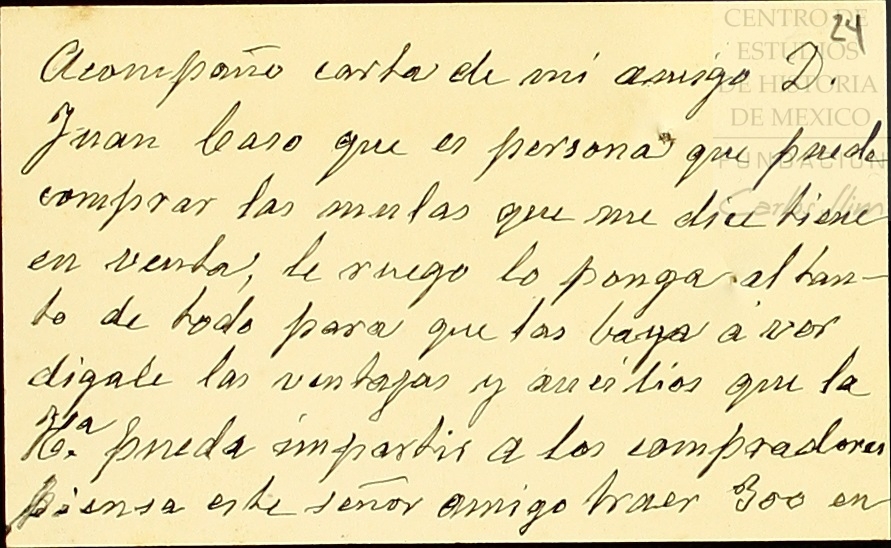 CENTRO DE
ESTUDIOS
DE HISTORIA
DE MEXICO
FUNDACIÓN
Carlos Slim
24
Acompaño carta de mi amigo D.
Juan Caso que es persona que puede
comprar las mulas que me dice tiene
en venta, le ruego lo ponga al tan-
to de todo para que las baya á ver
digale las ventajas y aucilios que la
Hª. pueda impartir a los compradores
piensa este señor amigo traer 300 en